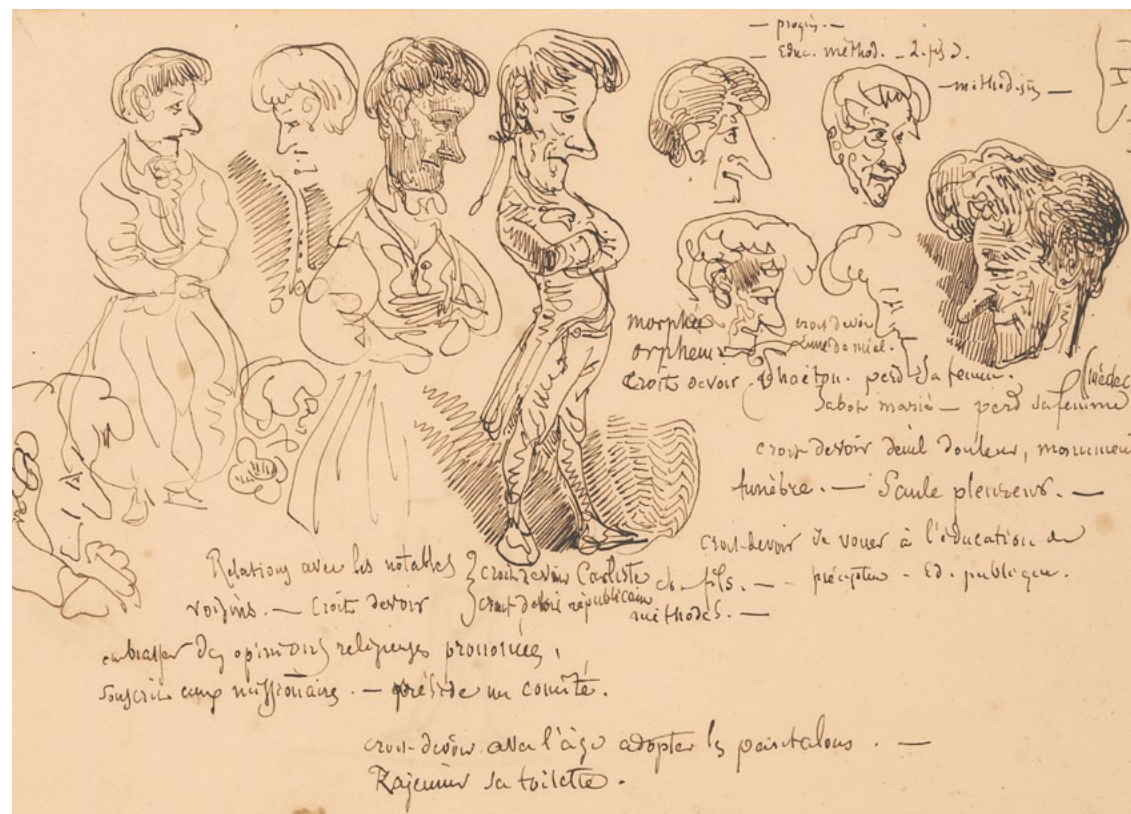 — progrès. —
— Educ. méthod. — 2. fils.
— méthodistes —
morphée
orpheus
croit devoir
lune de miel.
croit devoir phaéton. perd sa femme.
Jabot marié — perd sa femme
médec
croit devoir deuil douleur, monument
funèbre. — Saule pleureur. —
croit devoir se vouer à l'éducation de
ch. fils. — — précepteur — Ed. publique.
méthodes. —
Relations avec les notables
voisins. — Croit devoir
croit devoir Carliste
croit devoir républicain
embrasser des opinions religieuses prononcées,
souscrit aux missionaires. — préside un comité.
croit devoir avec l'âge adopter les pantalons. —
Rajeunir sa toilette.